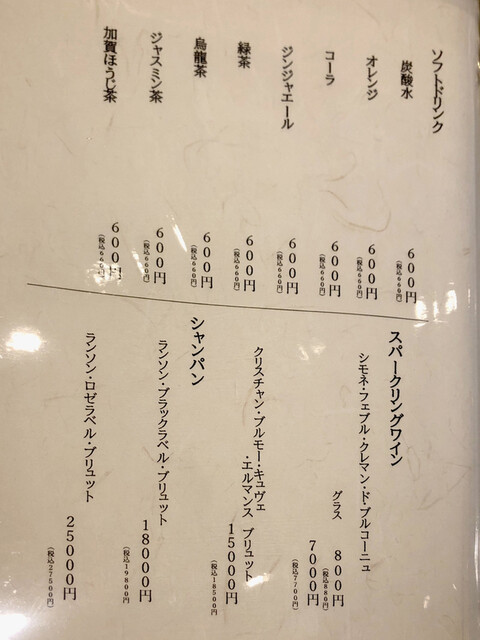 ソフトドリンク
炭酸水
600円
(税込660円)
オレンジ
600円
(税込660円)
コーラ
600円
(税込660円)
ジンジャエール
600円
(税込660円)
緑茶
600円
(税込660円)
烏龍茶
600円
(税込660円)
ジャスミン茶
600円
(税込660円)
加賀ほうじ茶
600円
(税込660円)
スパークリングワイン
シモネ・フェブル・クレマン・ド・ブルコーニュ
グラス
800円
(税込880円)
7000円
(税込7700円)
クリスチャン・ブルモー・キュヴェ
・エルマンス ブリュット
15000円
(税込18500円)
シャンパン
ランソン・ブラックラベル・ブリュット
18000円
(税込19800円)
ランソン・ロゼラベル・ブリュット
25000円
(税込27500円)